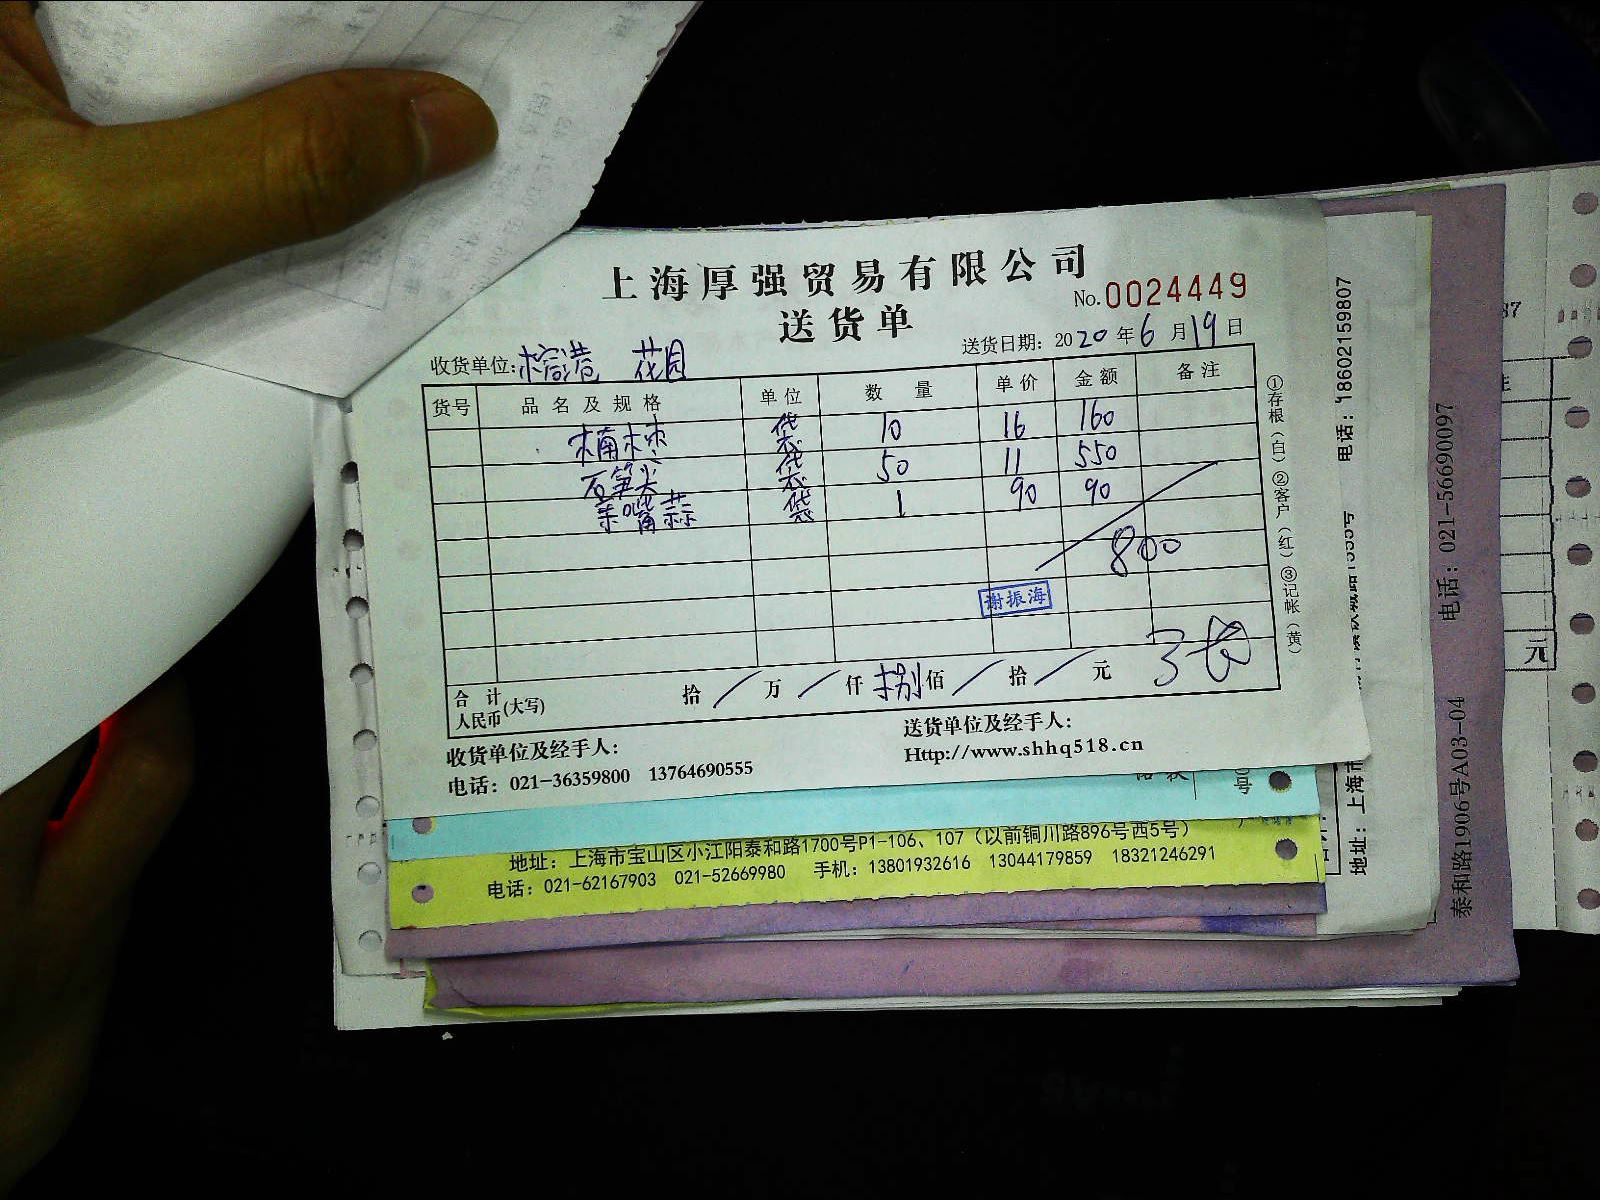 上海厚强贸易有限公司
No.0024449
送货单
送货日期：2020年6月19日
收货单位：榕港 花园
货号 品名及规格 单位 数量 单价 金额 备注
袋 10 16 160
石笋尖 袋 50 11 550
袋 1 90 90
800
谢振海
合计人民币(大写) 拾／万／仟捌佰／拾／元
收货单位及经手人：
送货单位及经手人：
电话：021-36359800 13764690555
Http://www.shhq518.cn
①存根（白）②客户（红）③记帐（黄）
地址：上海市宝山区小江阳泰和路1700号P1-106、107（以前铜川路896号西5号）
电话：021-62167903 021-52669980 手机：13801932616 13044179859 18321246291
电话：18602159807
地址：上海市
泰和路1906号A03-04 电话：021-56690097
元